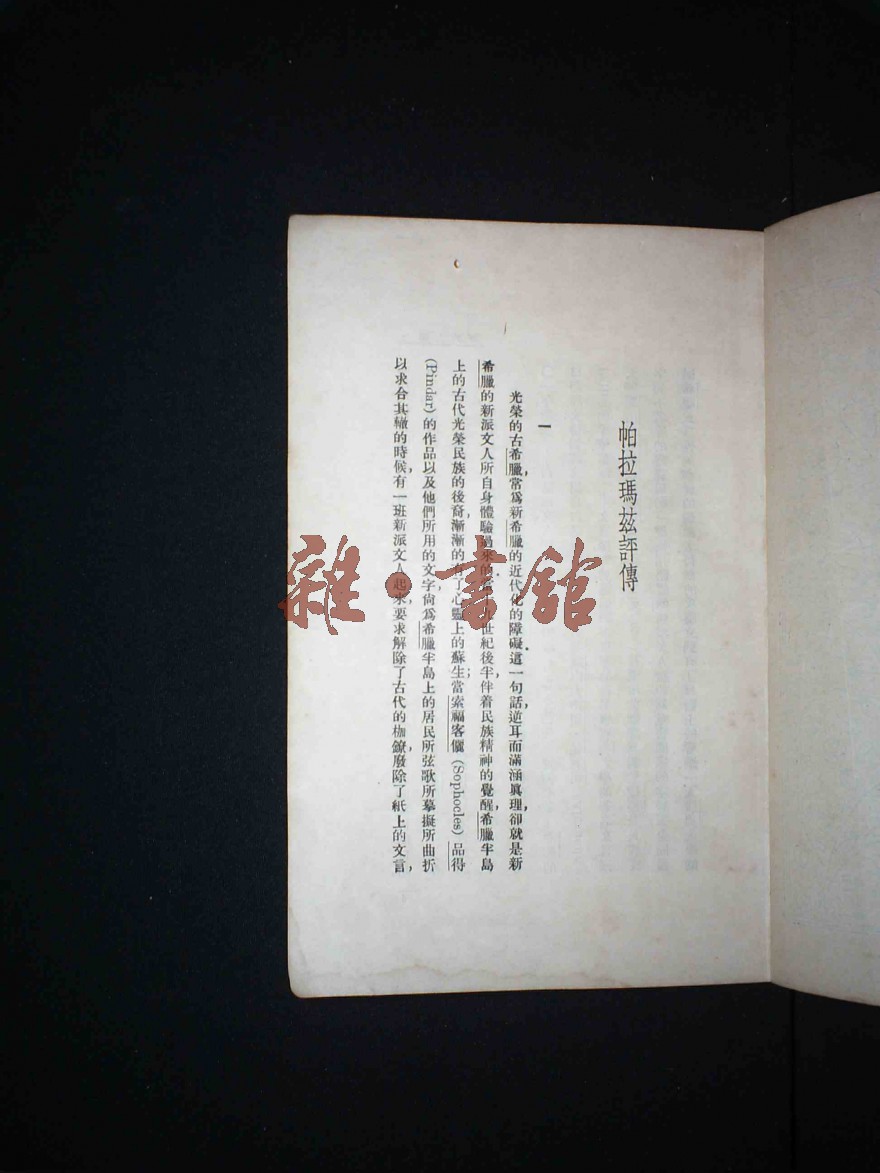 帕拉瑪兹評傳
一
光榮的古希臘，常爲新希臘的近代化的障礙。這一句話，逆耳而滿涵眞理，卻就是新
希臘的新派文人所自身體驗過來的。世紀後半，伴着民族精神的覺醒，希臘半島
上的古代光榮民族的後裔，漸漸的有了心靈上的蘇生；當索福客儷（Sophocles）品得
（Pindar）的作品以及他們所用的文字，尙爲希臘半島上的居民所弦歌所摹擬所曲折
以求合其轍的時候，有一班新派文人起來，要求解除了古代的枷鐐，廢除了紙上的文言，
雜·書館